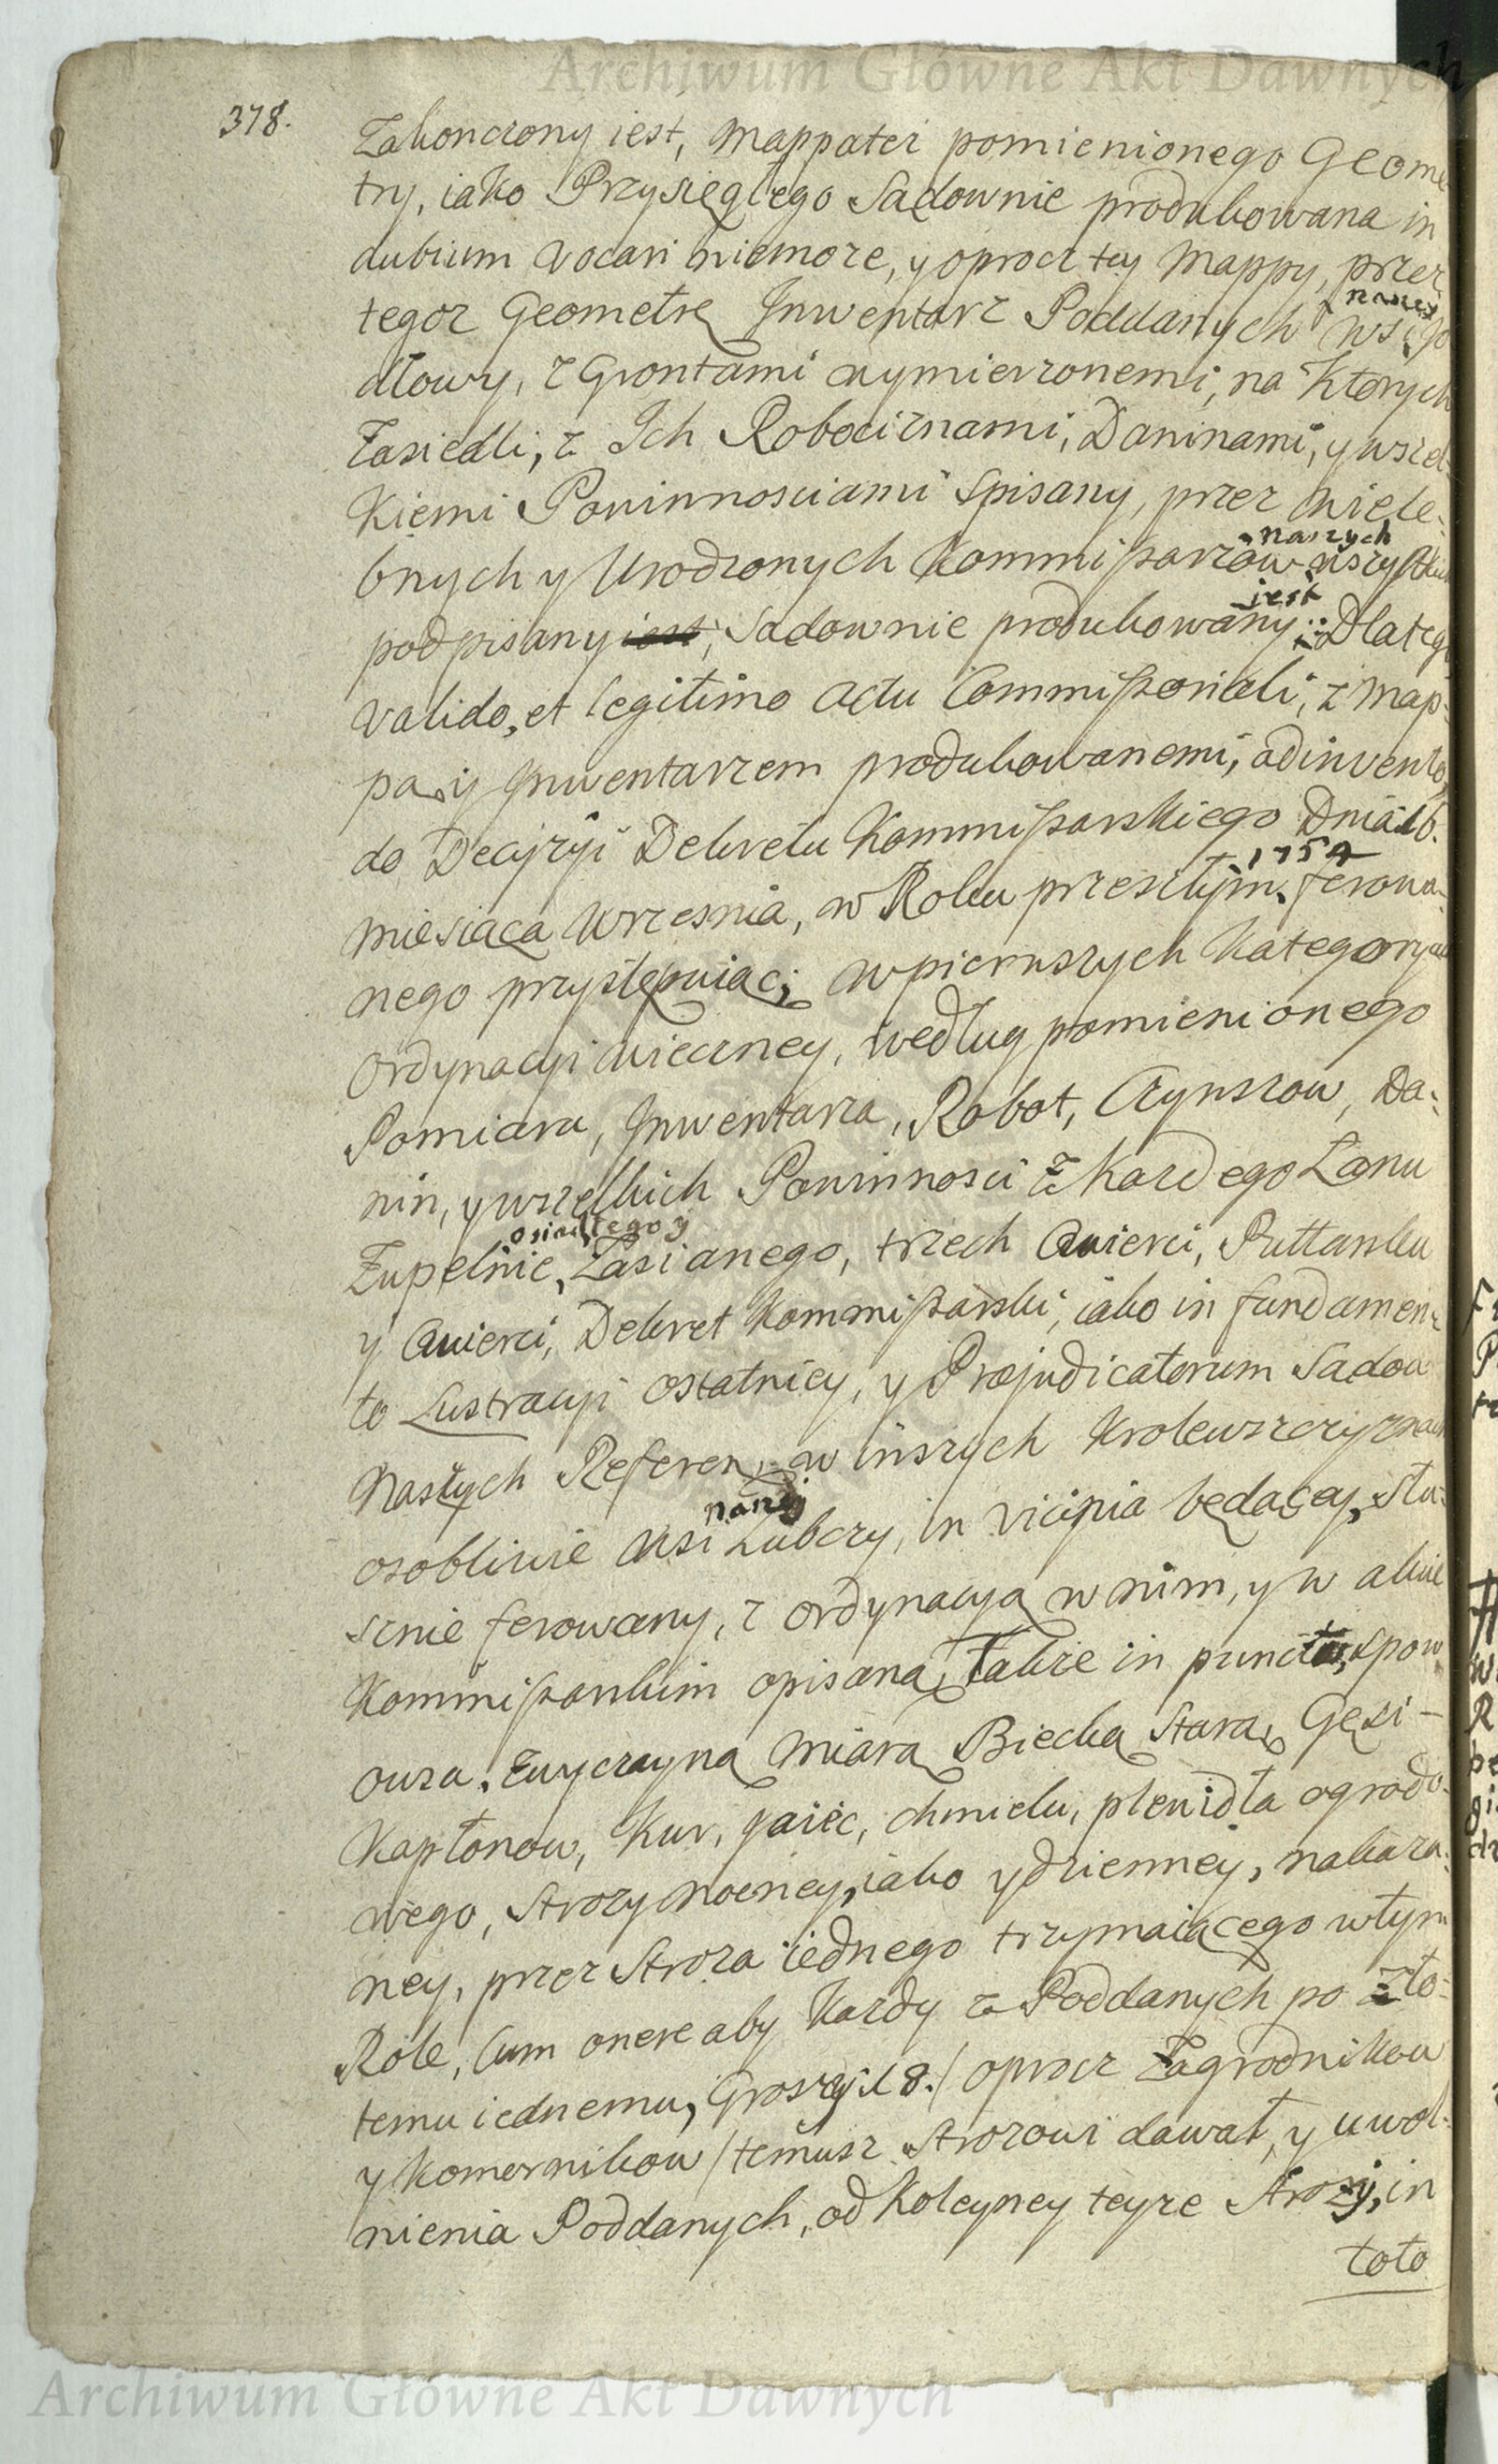 Archiwum Główne Akt Dawnych
378.
Zakonczony iest, Mappatei pomienionego Geome-
try, iako Przysięglego Sądownie produkowana in
dubium vocari niemoze, y oprocz tey Mappy, przez
naszey
tegoz Geometrę Inwentarz Poddanych Wsi Jo
dłowy, z Grontami wymierzonemi, na Ktorych
Zasiedli, z Ich Robociznami, Daninami, y wszel-
Kiemi Powinnosciami Spisany, przez Wiele-
naszych
bnych y Urodzonych Kommissarzow wszystkich
iest
podpisany iest, Sądownie produkowany: Dlatego
valido, et legitimo Actu Commissoriali, z Map-
pą, y Inwentarzem produkowanemi, adinvento,
do Decyzyi Dekretu Kommissarskiego Dnia 16.
1754
Miesiąca Wrzesnia, w Roku przeszłym ferowa-
nego przystępuiąc; w pierwszych Kategoryach
Ordynacyi wieczney, według pomienionego
Pomiaru, Inwentarza, Robot, Czynszow, Da-
nin, y wszelkich Powinnosci z Kazdego Łanu
osiadłego y
Zupelnie, Zasianego, trzech Cwierci, Pułłanku
y Cwierci, Dekret Kommissarski, iako in fundamen-
to Lustracyi ostatniey, y Præjudicatorum Sądow
Naszych Referen: w inszych Krolewszczyznach
naszey
osobliwie Wsi Łubczy, in vicinia będącey, słu-
sznie ferowany, z ordynacyą w nim, y w akcie
Kommissarskim opisaną, Także in puncto, spow
owsa, Zwyczayną Miarą Biecką Starą, Gęsi-
Kapłonow, Kur, Jaiec, chmielu, plewidła ogrodo-
wego, Strozy nocney, iako y dzienney, nakaza-
ney, przez Stroza iednego trzymaiącego w tym
Role, Cum onere aby Kazdy z Poddanych po zło-
temu iednemu, Groszy 18./ oprocz Zagrodnikow
y Komornikow / temusz Strozowi dawał, y uwol-
nienia Poddanych, od Koleyney teyze Strozy, in
toto
Archiwum Główne Akt Dawnych